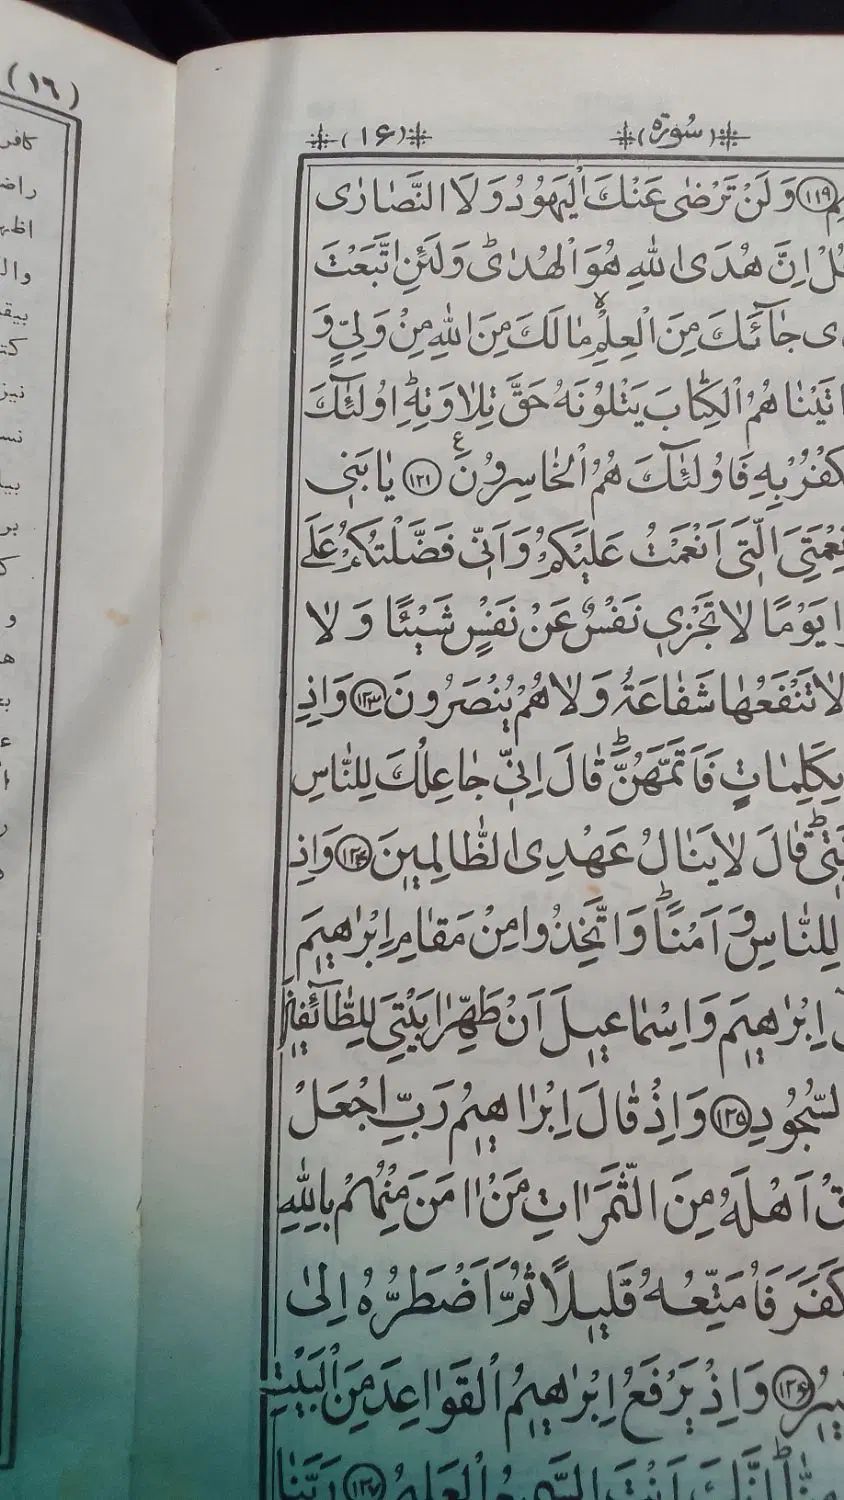 (١٦)
سُورَة (١۶)
(١١٩) وَلَنْ تَرْضٰى عَنْكَ الْيَهُودُ وَلَا النَّصَارٰى
اِنَّ هُدَى اللّٰهِ هُوَ الْهُدٰىؕ وَلَئِنِ اتَّبَعْتَ
جَآئَكَ مِنَ الْعِلْمِۙ مَا لَكَ مِنَ اللّٰهِ مِنْ وَلِيٍّ وَ
اٰتَيْنَاهُمُ الْكِتَابَ يَتْلُونَهُ حَقَّ تِلَاوَتِهِؕ اُولٰٓئِكَ
فَاُولٰٓئِكَ هُمُ الْخَاسِرُونَ ع (١٢١) يَا بَنِي
الَّتِي اَنْعَمْتُ عَلَيْكُمْ وَاَنِّي فَضَّلْتُكُمْ عَلَى
يَوْمًا لَا تَجْزِي نَفْسٌ عَنْ نَفْسٍ شَيْئًا وَلَا
لَا تَنْفَعُهَا شَفَاعَةٌ وَلَا هُمْ يُنْصَرُونَ (١٢٣) وَاِذِ
بِكَلِمَاتٍ فَاَتَمَّهُنَّؕ قَالَ اِنِّي جَاعِلُكَ لِلنَّاسِ
قَالَ لَا يَنَالُ عَهْدِى الظَّالِمِينَ (١٢۴) وَاِذْ
لِلنَّاسِ وَ اَمْنًاؕ وَاتَّخِذُوا مِنْ مَقَامِ اِبْرٰهِيمَ
اِبْرٰهِيمَ وَاِسْمَاعِيلَ اَنْ طَهِّرَا بَيْتِيَ لِلطَّآئِفِينَ
السُّجُودِ (١٢۵) وَاِذْ قَالَ اِبْرَاهِيمُ رَبِّ اجْعَلْ
اَهْلَهُ مِنَ الثَّمَرَاتِ مَنْ اٰمَنَ مِنْهُمْ بِاللّٰهِ
كَفَرَ فَاُمَتِّعُهُ قَلِيلًا ثُمَّ اَضْطَرُّهُ اِلٰى
(١٢۶) وَاِذْ يَرْفَعُ اِبْرٰهِيمُ الْقَوَاعِدَ مِنَ الْبَيْتِ
اِنَّكَ اَنْتَ السَّمِيعُ الْعَلِيمُ (١٢٧) رَبَّنَا